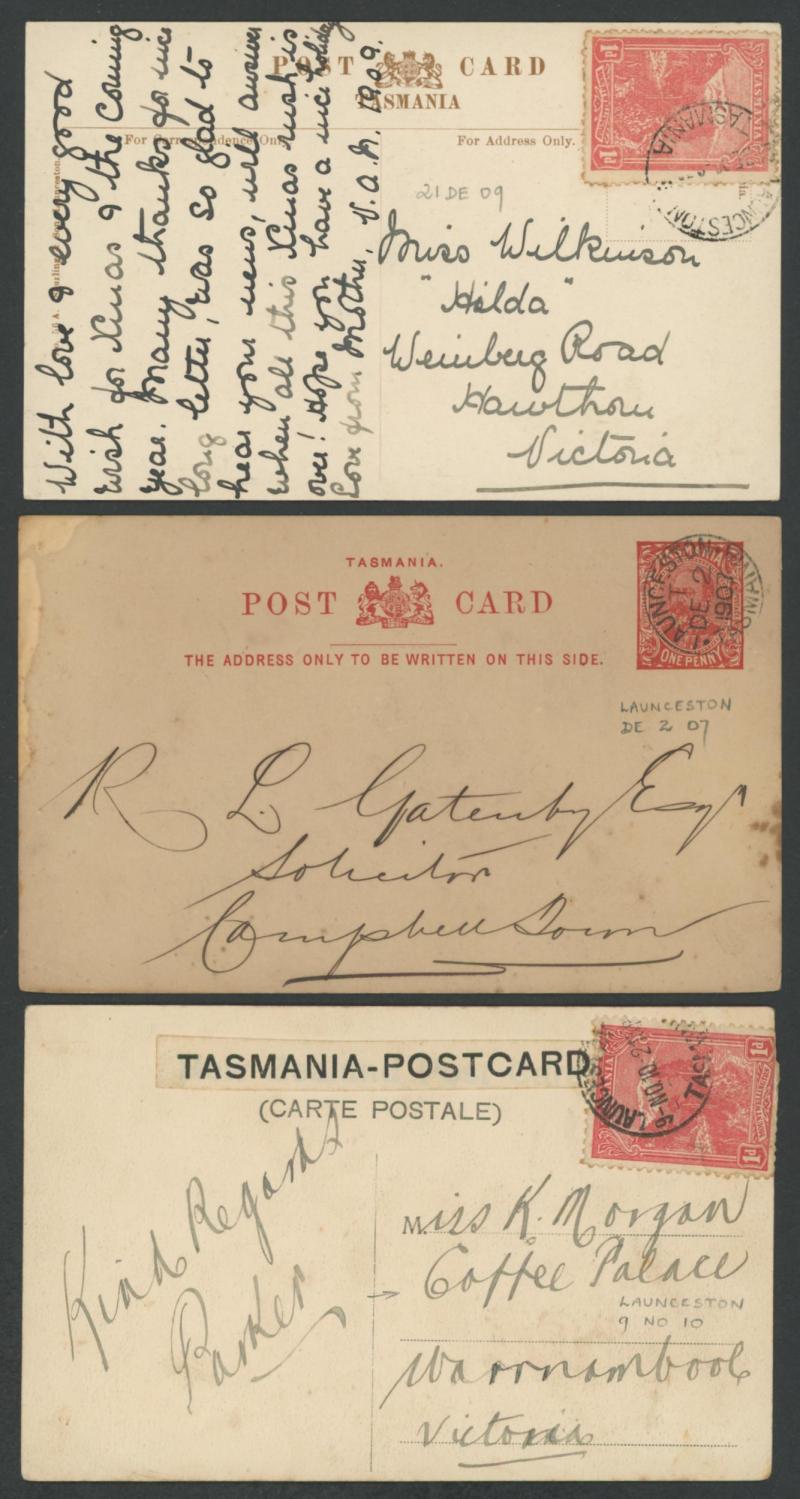 POST CARD
TASMANIA
For Correspondence Only.
For Address Only.
With love & every good
wish for Xmas & the coming
year. Many thanks for nice
long letter, was so glad to
hear your news, will answer
when all this Xmas rush is
over! Hope you have a nice holiday
Love from Mother, V.A.M. 1909.
1d TASMANIA 1d
LAUNCESTON TASMANIA
21 DE 09
Miss Wilkinson
"Hilda"
Weinberg Road
Hawthorn
Victoria
TASMANIA.
POST CARD
THE ADDRESS ONLY TO BE WRITTEN ON THIS SIDE.
ONE PENNY
LAUNCESTON TASMANIA
T
DE 2
1907
LAUNCESTON
DE 2 07
R L Gatenby Esqr
Solicitor
Campbell Town
TASMANIA-POSTCARD
(CARTE POSTALE)
1d 1d
LAUNCESTON
9-NO 10
TAS
Kind Regards
Parker
Miss K. Morgan
Coffee Palace
LAUNCESTON
9 NO 10
Warrnambool
Victoria